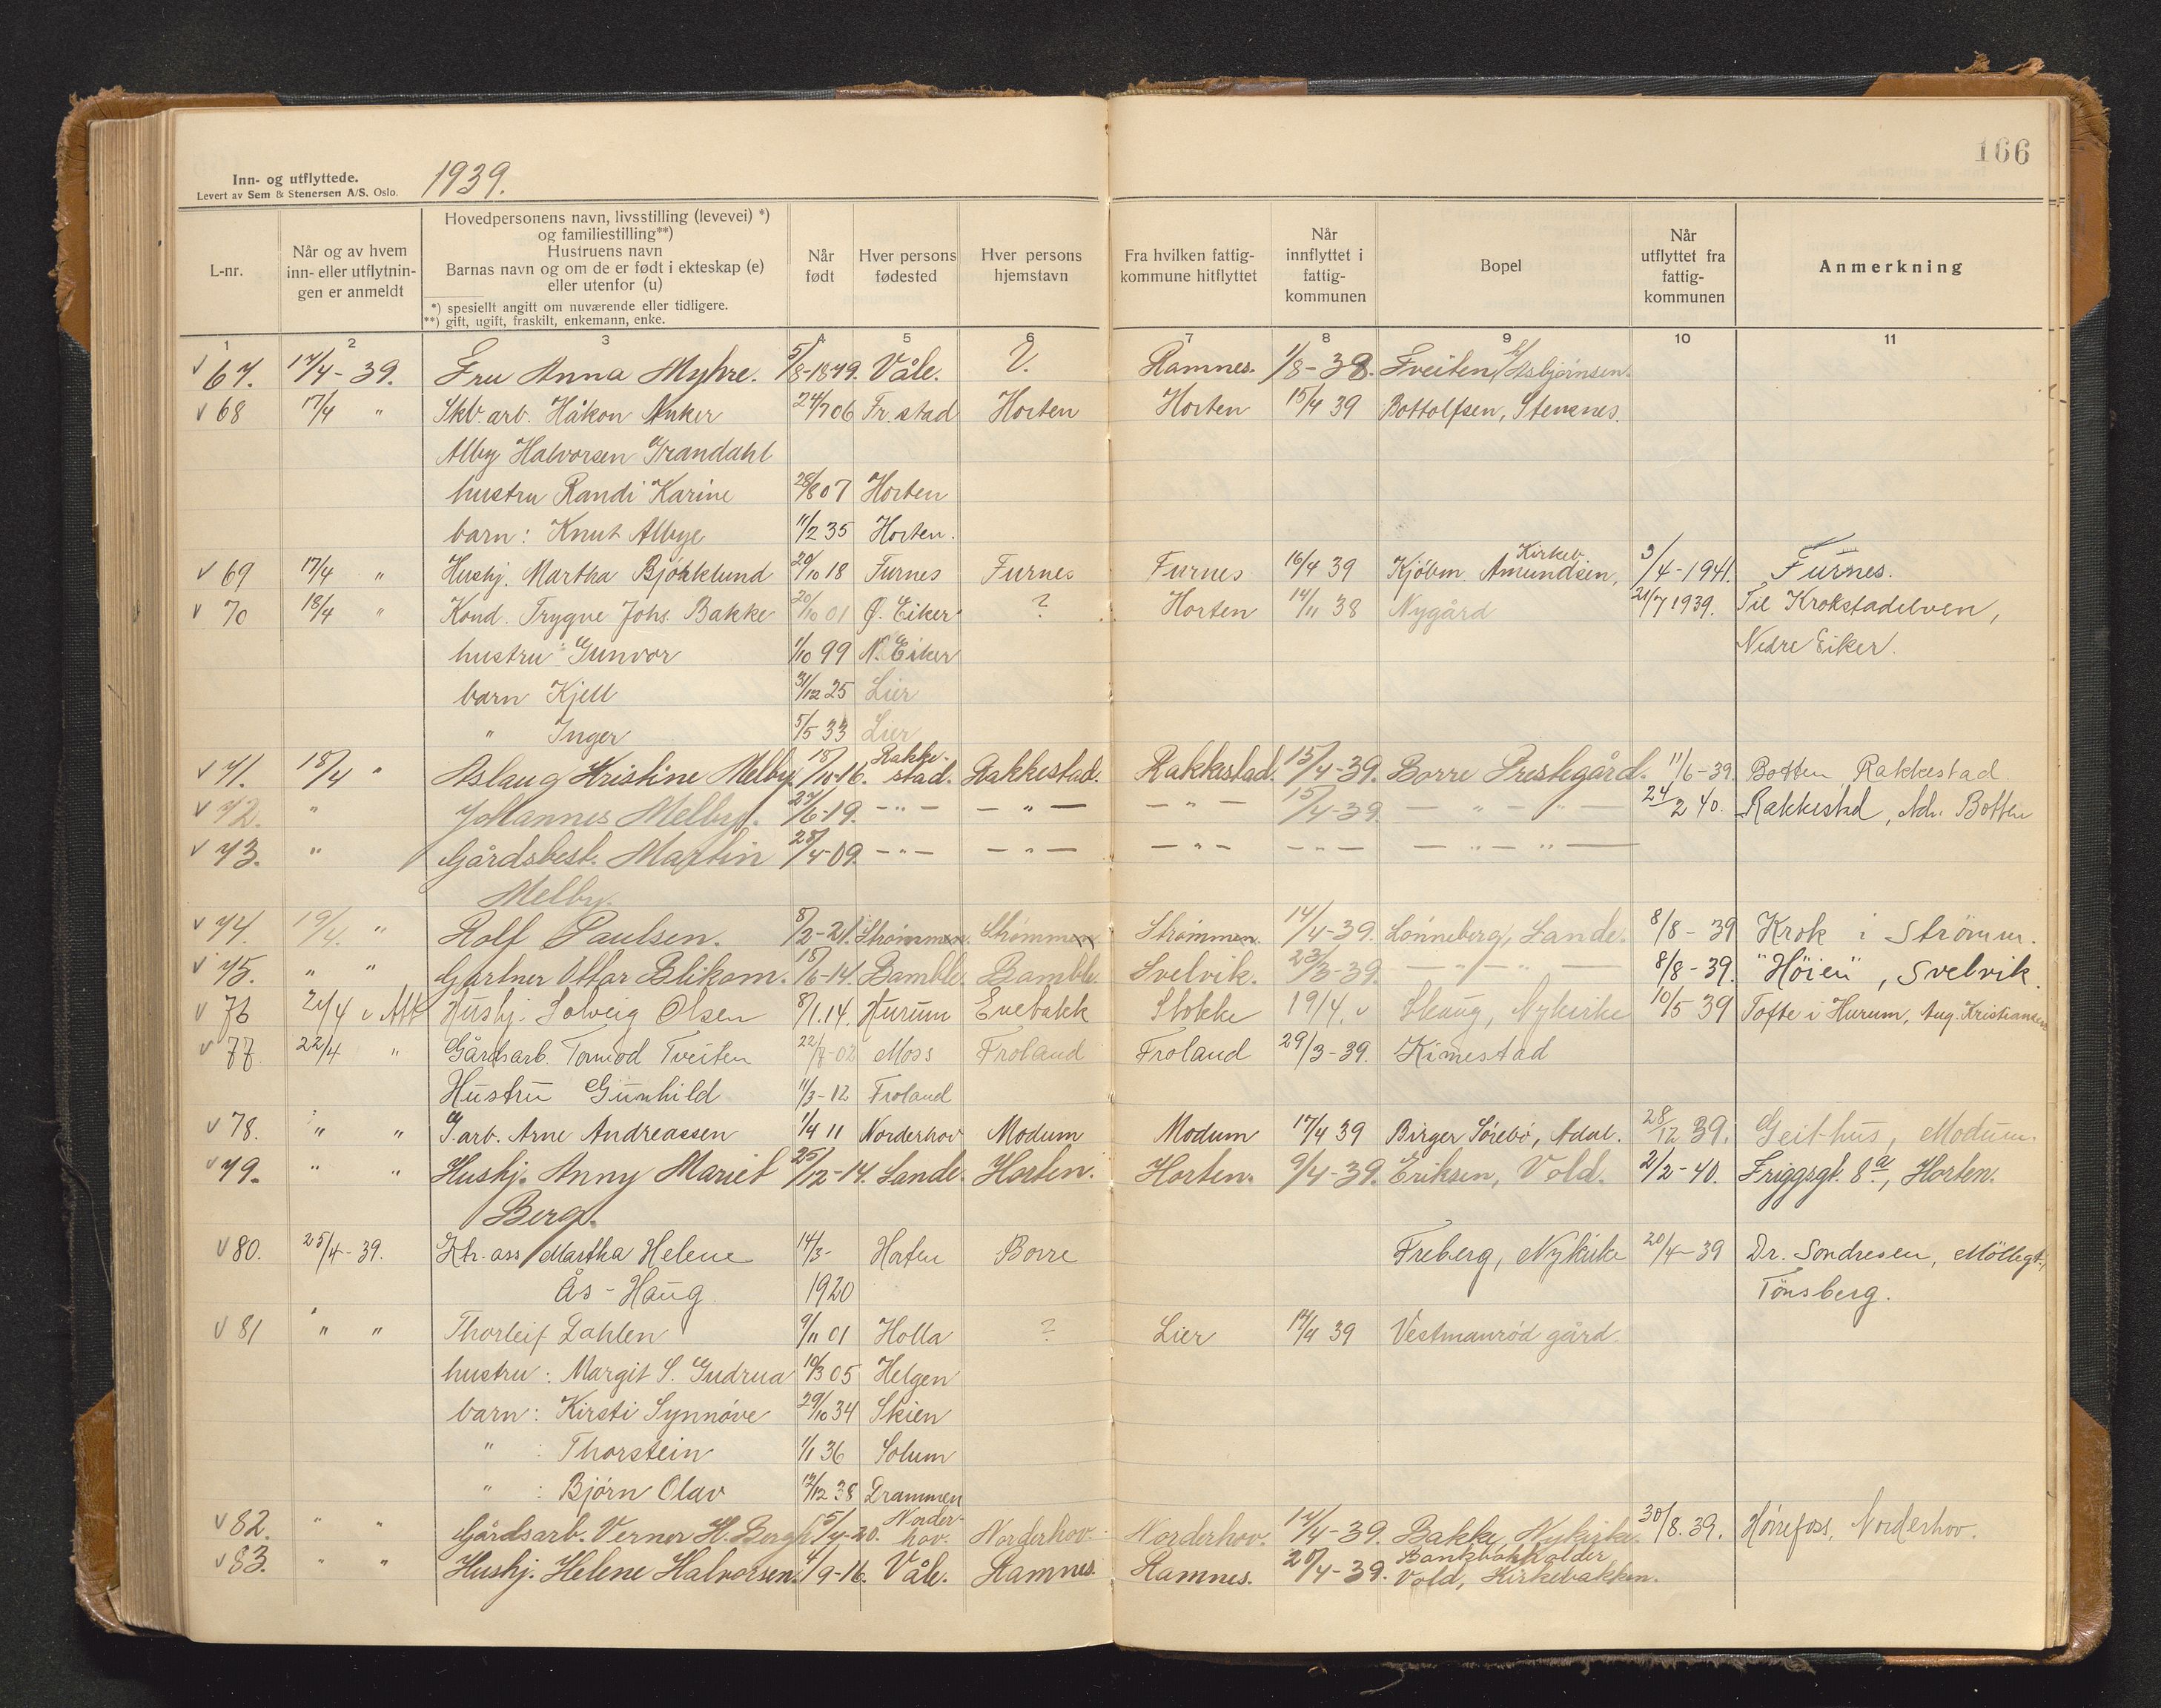 166
Inn- og utflyttede.
Levert av Sem & Stenersen A/S. Oslo.
1939.
L-nr.
Når og av hvem inn- eller utflytnin-gen er anmeldt
Hovedpersonens navn, livsstilling (levevei) *)
og familiestilling**)
Hustruens navn
Barnas navn og om de er født i ekteskap (e)
eller utenfor (u)
*) spesiellt angitt om nuværende eller tidligere.
**) gift, ugift, fraskilt, enkemann, enke.
Når født
Hver persons fødested
Hver persons hjemstavn
Fra hvilken fattig-kommune hitflyttet
Når innflyttet i fattig-kommunen
Bopel
Når utflyttet fra fattig-kommunen
Anmerkning
1 2 3 4 5 6 7 8 9 10 11
v 67. 17/4-39. Fru Anna Myhre. 5/8-1849. Våle. V. Ramnes. 1/8-38. Tveiten, Asbjørnsen.
v 68 17/4 " Skb. arb. Håkon Anker 24/7 06 Fr.stad Horten Horten 15/4 39 Bottolfsen, Stensnes.
Alby Halvorsen Grandahl
hustru Randi Karine 28/8 07 Horten
barn: Knut Albye 11/2 35 Horten.
v 69 17/4 " Hushj. Martha Bjørklund 20/10 18 Furnes Furnes Furnes 16/4 39 Kjöbm. Amundsen, Kirkeb. 3/4-1941. Furnes.
v 70 18/4 " Kond. Trygve Johs. Bakke 20/10 01 Ø. Eiker ? Horten 14/11 38 Nygård 21/7 1939. Til Krokstadelven,
hustru Gunvor 1/10 99 N. Eiker Nedre Eiker.
barn Kjell 31/12 25 Lier
" Inger 5/5 33 Lier
v 71. 18/4 " Aslaug Kristine Melby. 18/10-16. Rakke-stad. Rakkestad. Rakkestad. 15/4-39. Borre Prestegård. 11/6-39 Botten, Rakkestad
v 72. " Johannes Melby. 27/6-19. -"- -"- -"- 15/4-39. - " - " - 24/2 40. Rakkestad, Adr. Botten
v 73. " Gårdsbest. Martin 28/4-09. -"- -"- -"- -"- - " - " -
Melby.
v 74. 19/4. " Rolf Paulsen. 8/2-21. Strømmen. Strømmen Strømmen. 14/4-39. Lønneberg, Sande. 8/8-39 Krok i Strömm.
v 75. " " Gartner Ottar Blikom. 18/6-14. Bamble. Bamble. Svelvik. 23/3-39. - " - " - 8/8-39. "Höien", Svelvik.
v 76 21/4 v Att Hushj. Solveig Olsen 8/1.14. Hurum Enebakk Stokke 19/4. v Skaug, Nykirke 10/5 39 Tofte i Hurum, Aug. Kristiansen
v 77. 22/4 " Gårdsarb. Tormod Tveiten 22/7-02 Moss Froland Froland 29/3-39. Kimestad
Hustru Gunhild 11/3-12 Froland
v 78. " " G.arb. Arne Andreassen 1/4 11 Norderhov Modum Modum 17/4 39 Birger Sörebö, Adal. 28/12 39. Geithus, Modum.
v 79. " " Hushj. Anny Mariet 25/12-14. Sande. Horten. Horten. 9/4-39. Eriksen, Vold. 2/2-40. Friggsgt. 8a, Horten.
Berg.
v 80. 25/4-39. Ktr. ass Martha Helene 14/3- Horten Borre Freberg, Nykirke 20/4-39 Dr. Sondresen, Möllegt.,
Ås-Haug 1920 Tönsberg.
v 81 " " Thorleif Dahlen 9/11 01 Holla ? Lier 14/4 39 Vestmanrød gård
hustru: Margit S. Gudrun 10/3 05 Helgen
barn: Kirsti Synnøve 29/10 34 Skien
" : Thorstein 1/1 36 Solum
" : Bjørn Olav 12/12 38 Drammen
v 82. " " Gårdsarb. Verner H. Bergh 5/4-20. Norder-hov. Norderhov. Norderhov. 14/4-39. Bakke, Nykirke. 30/8.39. Hønefoss, Norderhov.
v 83. " " Hushj. Helene Halvorsen. 4/9-16. Våle. Ramnes. Ramnes. 20/4-39. Bankbokholder Vold, Kirkebakken.